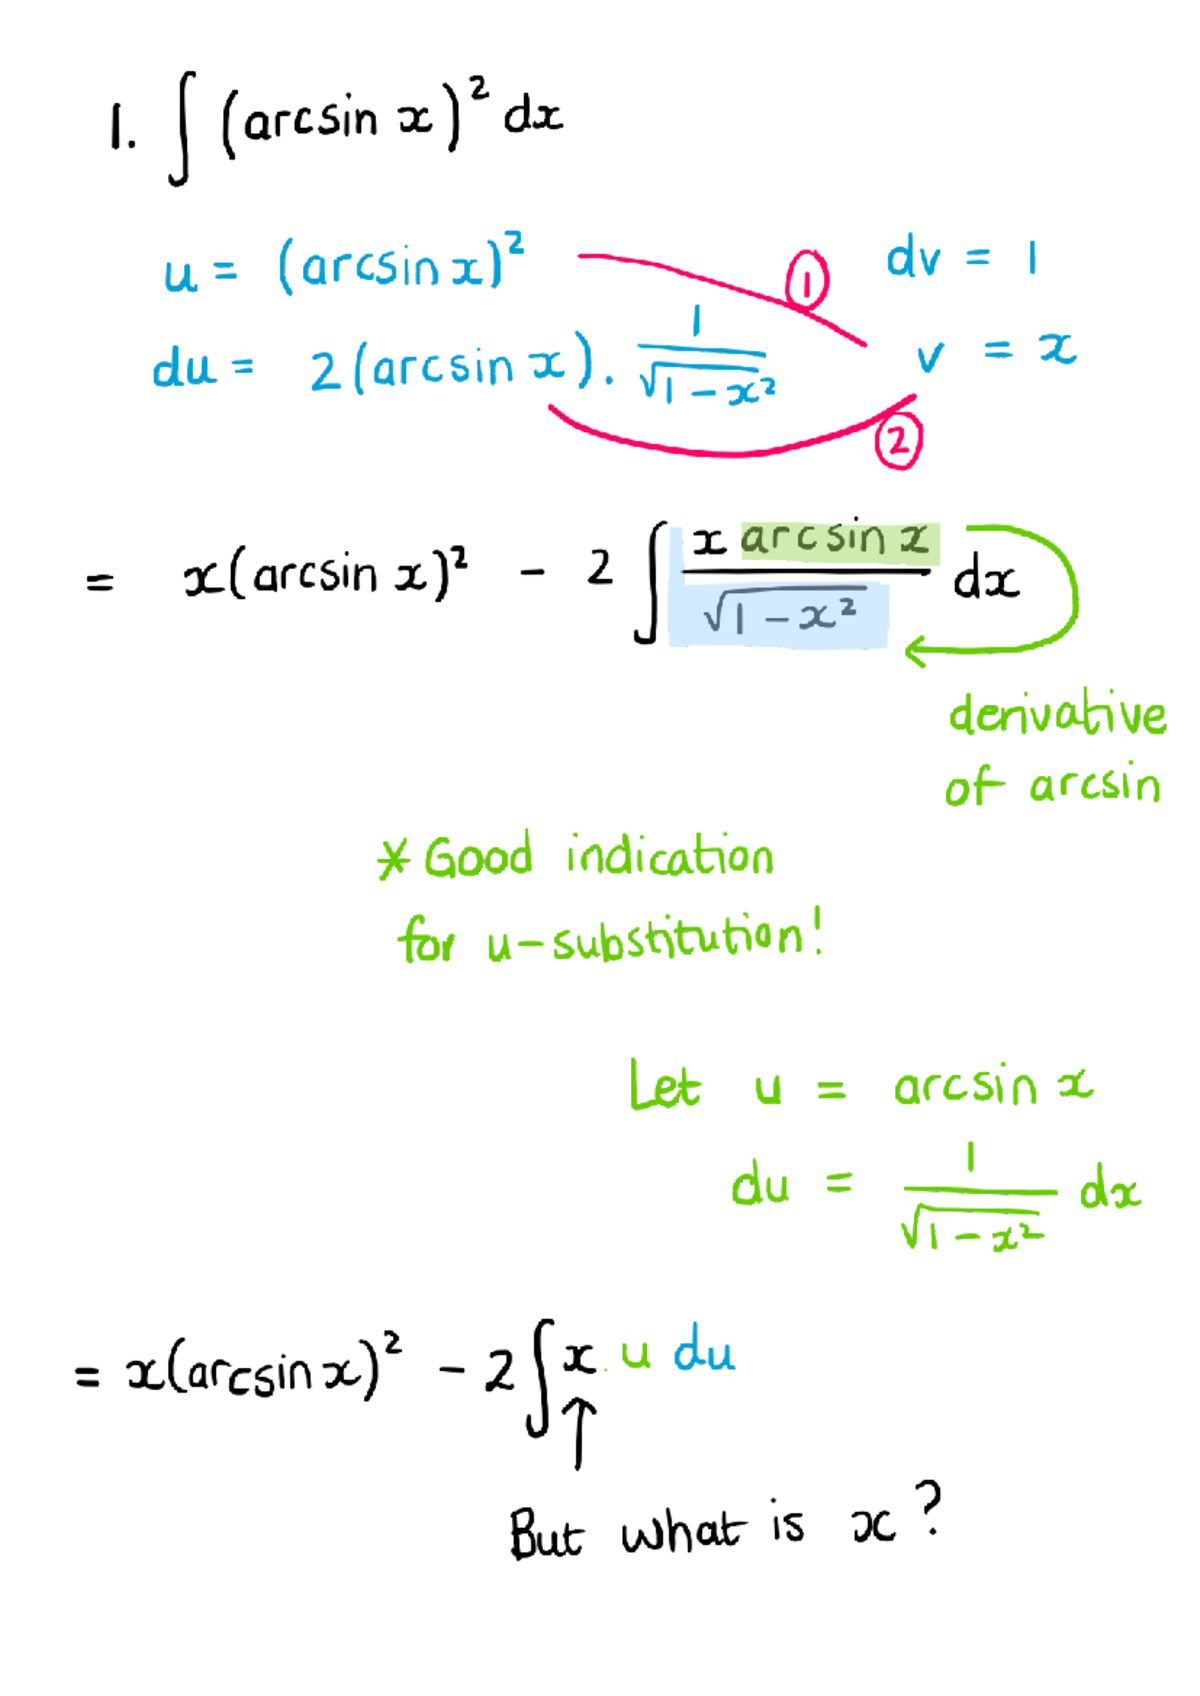 1. ∫ (arcsin x)² dx
u = (arcsin x)² ① dv = 1
du = 2(arcsin x). 1/√(1-x²) v = x
②
= x(arcsin x)² - 2 ∫ x arcsin x / √(1-x²) dx
derivative
of arcsin
* Good indication
for u-substitution!
Let u = arcsin x
du = 1/√(1-x²) dx
= x(arcsin x)² - 2 ∫ x . u du
↑
But what is x ?